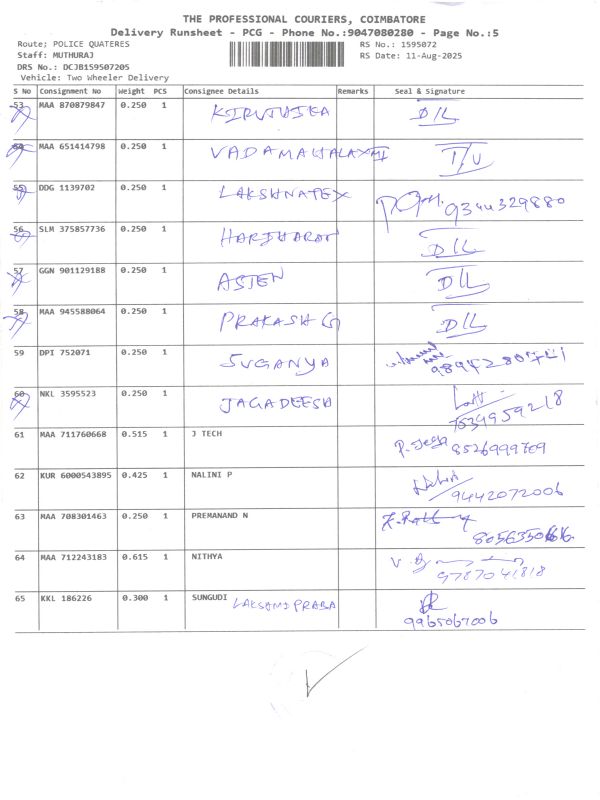 THE PROFESSIONAL COURIERS, COIMBATORE
Delivery Runsheet - PCG - Phone No.:9047080280 - Page No.:5
Route; POLICE QUATERES RS No.: 1595072
Staff: MUTHURAJ RS Date: 11-Aug-2025
DRS No.: DCJB159507205
Vehicle: Two Wheeler Delivery
S No Consignment No Weight PCS Consignee Details Remarks Seal & Signature
53 MAA 870879847 0.250 1 KIRUTHIKA D/L
54 MAA 651414798 0.250 1 VADAMAHALAXMI I/U
55 DDG 1139702 0.250 1 9344329880
56 SLM 375857736 0.250 1 HARIHARAN D/L
57 GGN 901129188 0.250 1 D/L
58 MAA 945588064 0.250 1 PRAKASH G D/L
59 DPI 752071 0.250 1 SUGANYA
60 NKL 3595523 0.250 1 JAGADEESH 7639959218
61 MAA 711760668 0.515 1 J TECH 8526999709
62 KUR 6000543895 0.425 1 NALINI P 9442072006
63 MAA 708301463 0.250 1 PREMANAND N
64 MAA 712243183 0.615 1 NITHYA 9787041818
65 KKL 186226 0.300 1 SUNGUDI LAKSHMI PRABA 9965067006